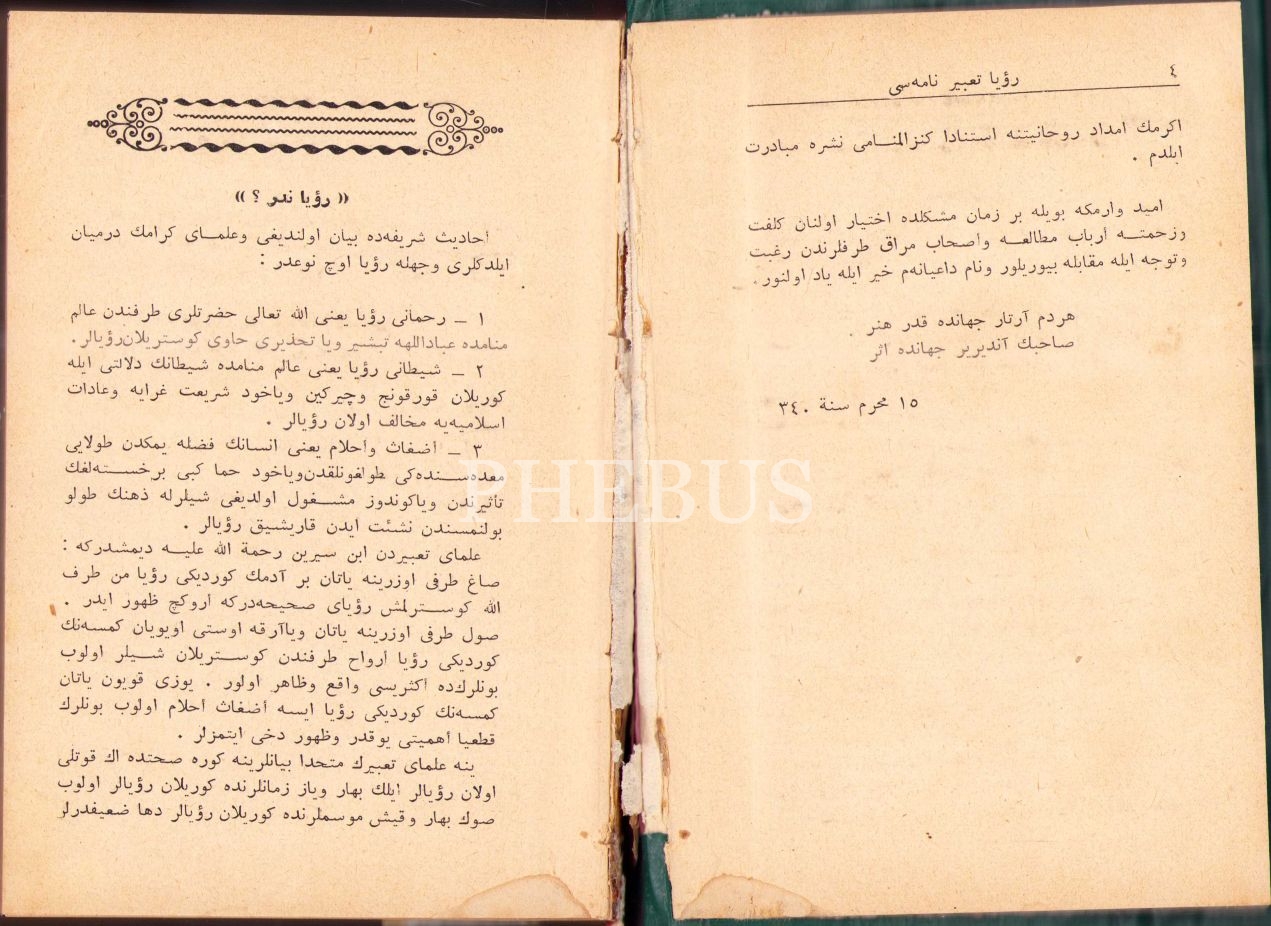 ٤
رؤيا تعبير نامه‌سى
اكرمك امداد روحانيتنه استنادا كنزالمنامى نشره مبادرت
ايلدم .
اميد وارمكه بويله بر زمان مشكلده اختيار اولنان كلفت
وزحمتــه أرباب مطالعــه وأصحاب مراق طرفلرندن رغبت
وتوجه ايله مقابله بيوريلور ونام داعيانه‌م خير ايله ياد اولنور.
هردم آرتار جهانده قدر هنر
صاحبك آنديرير جهانده اثر
١٥ محرم سنة ٣٤٠
« رؤيا ندر ؟ »
أحاديث شريفه‌ده بيان اولنديغى وعلمـاى كرامك درميان
ايلدكلرى وجهله رؤيا اوچ نوعدر :
١ ـ رحمانى رؤيا يعنى الله تعالى حضرتلرى طرفندن عالم
منامده عباداللهه تبشير ويا تحذيرى حاوى كوستريلان رؤيالر.
٢ ـ شيطانى رؤيا يعنى عالم منامده شيطانك دلالتى ايله
كوريلان قورقونج وچيركين وياخود شريعت غرايه وعادات
اسلاميه‌يه مخالف اولان رؤيالر .
٣ ـ أضغاث وأحلام يعنى انسانك فضله يمكدن طولايى
معده‌ســنده‌كى طولغونلقدن وياخود حما كبى برخستــه‌لغك
تأثيرندن وياكوندوز مشــغول اولديغى شيلرله ذهنك طولو
بولنمسندن نشئت ايدن قاريشيق رؤيالر .
علماى تعبيردن ابن سيرين رحمة الله عليــه ديمشدركه :
صاغ طرفى اوزرينه ياتان بر آدمك كورديكى رؤيا من طرف
الله كوســترلمش رؤياى صحيحه‌دركه أروكچ ظهور ايدر .
صول طرفى اوزرينه ياتان وياآرقه اوستى اويويان كمسه‌نك
كورديكى رؤيا أرواح طرفندن كوســتريلان شــيلر اولوب
بونلرك‌ده أكثريسى واقع وظاهر اولور . يوزى قويون ياتان
كمسه‌نك كورديكى رؤيا ايسه أضغاث أحلام اولوب بونلرك
قطعيا أهميتى يوقدر وظهور دخى ايتمزلر .
ينه علماى تعبيرك متحدا بيانلرينه كوره صحتده اك قوتلى
اولان رؤيالر ايلك بهار وياز زمانلرنده كوريلان رؤيالر اولوب
صوك بهار وقيش موسملرنده كوريلان رؤيالر دها ضعيفدرلر
PHEBUS